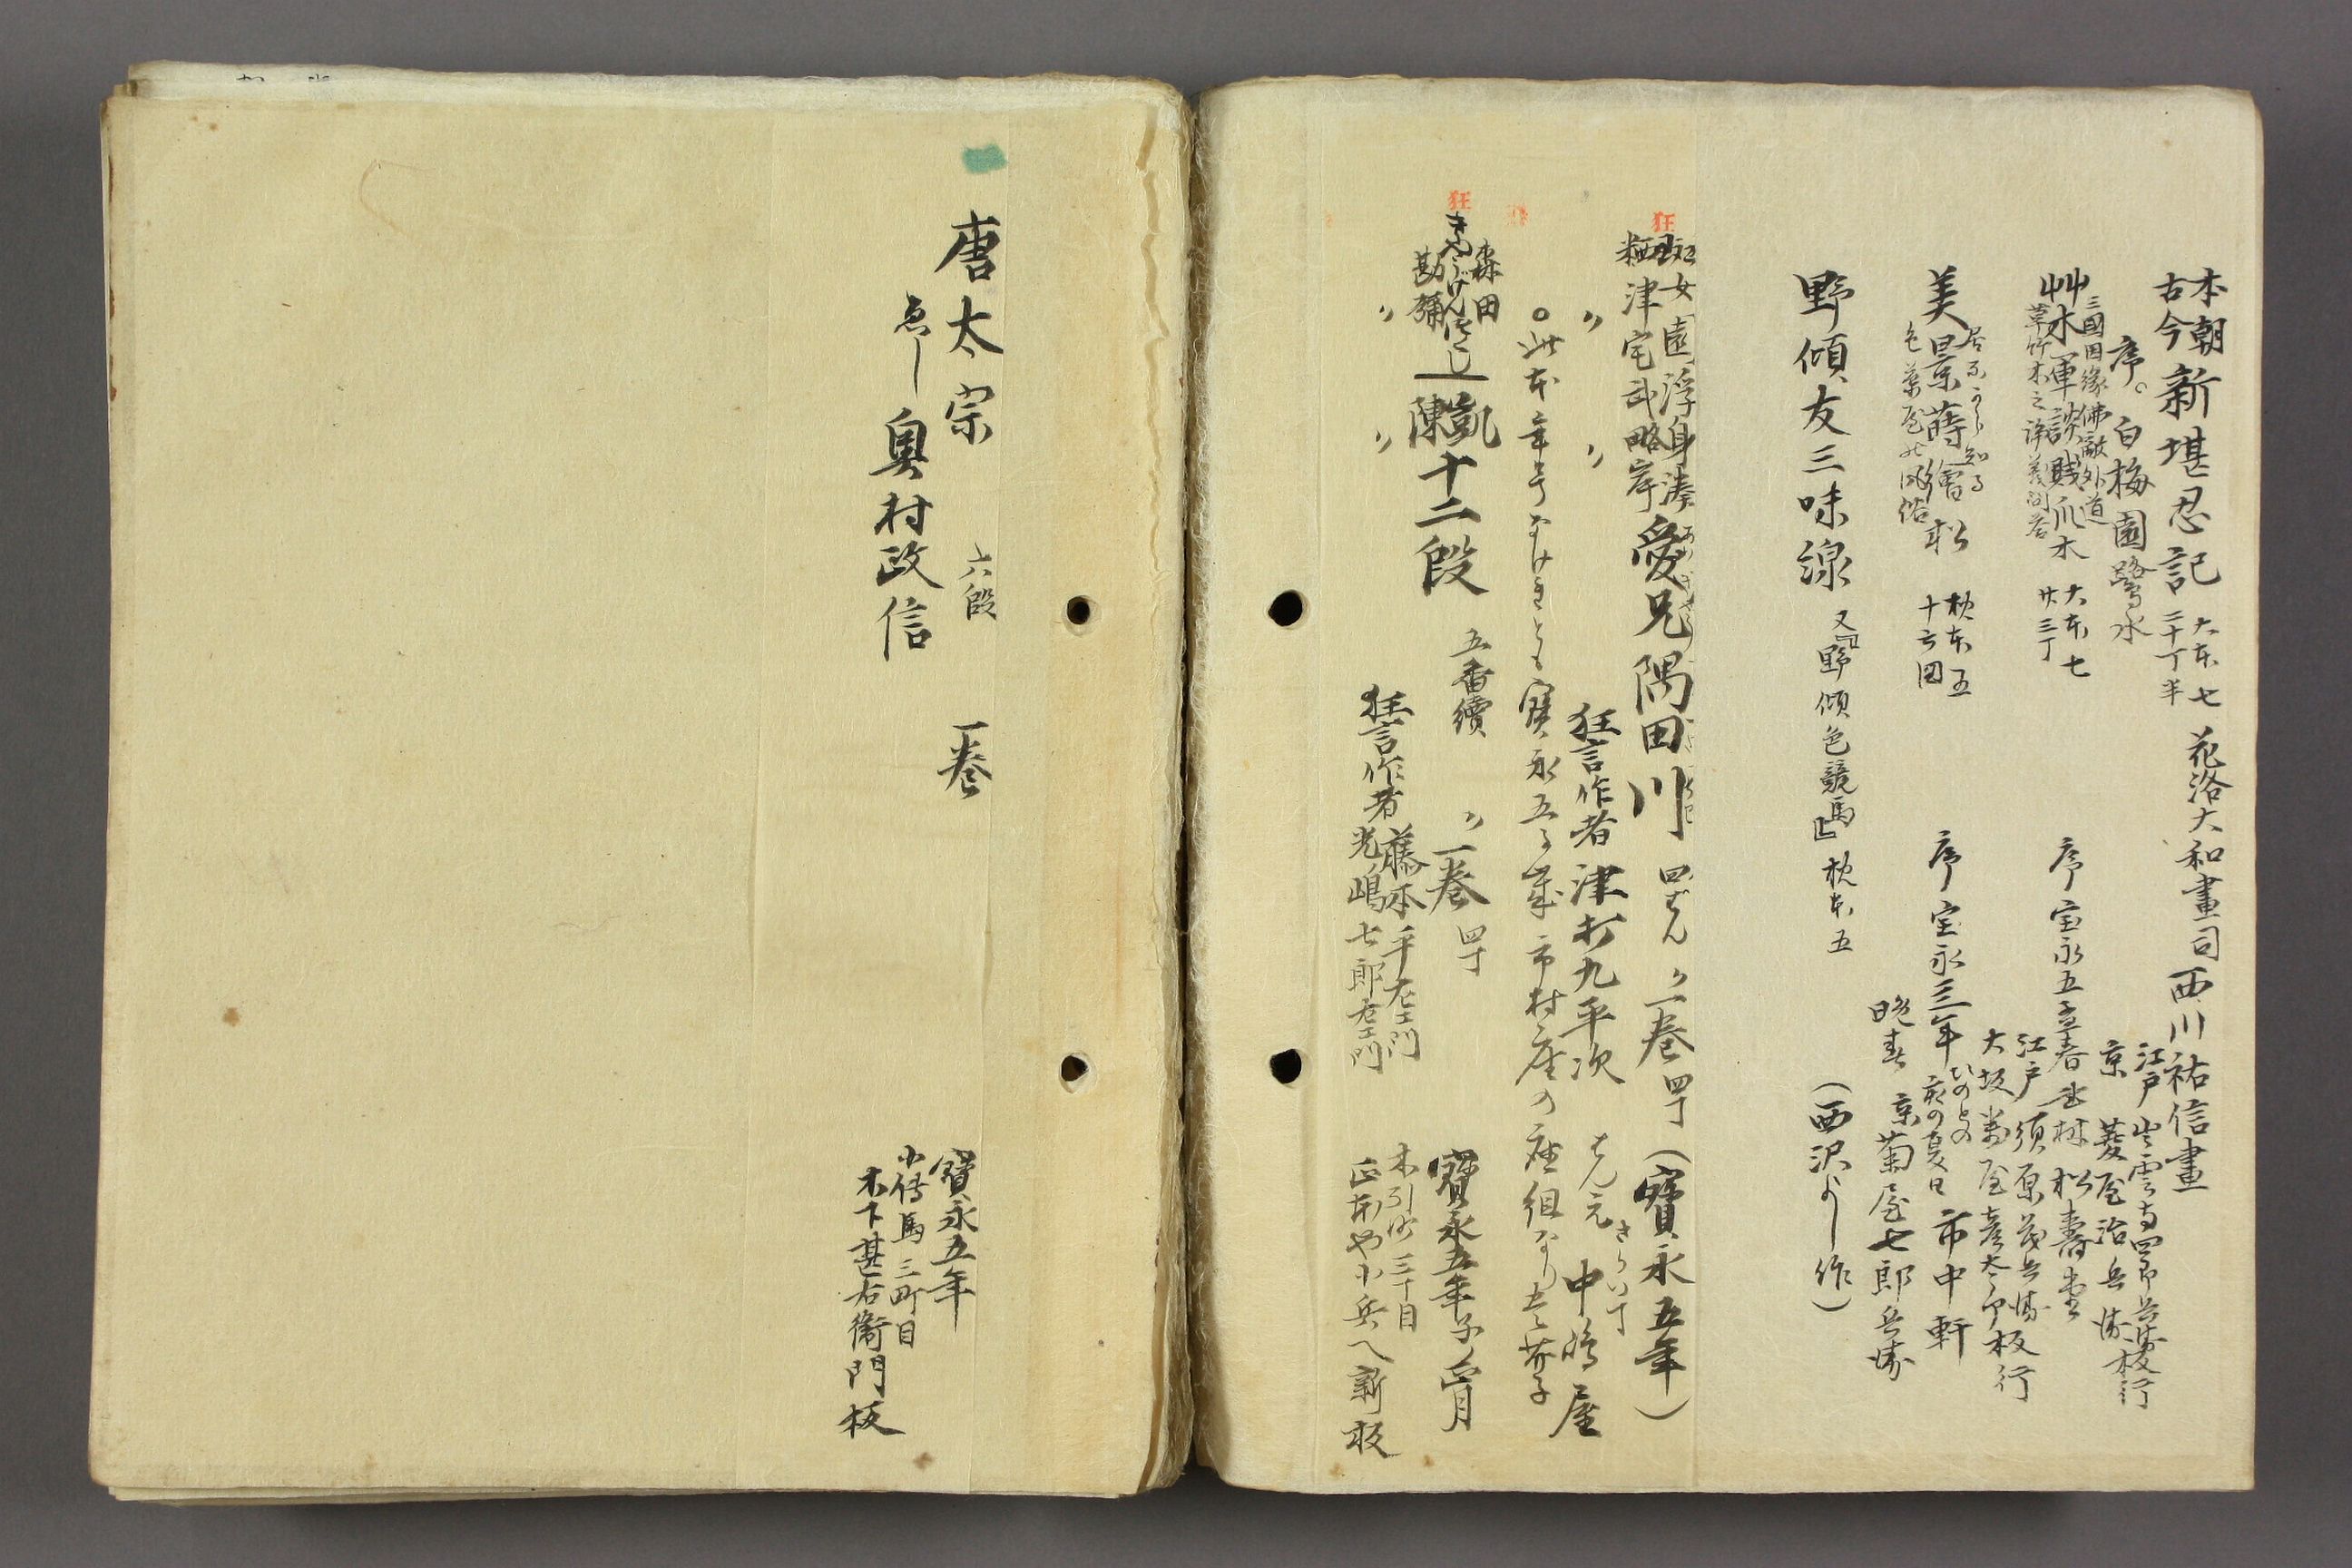 本朝
古今
新堪忍記
大本七
二十丁半
花洛大和畫司西川祐信畫
序。白梅園鷺水
江戸 出雲寺四郎兵衛板行
京 菱屋治兵衛
三國因縁佛敵外道
艸木軍談賤爪木
草竹木之諍義問答
大本七
廿三丁
序宝永五子孟春 書林 松壽堂
江戸 須原茂兵衛
大坂 萬屋彦太郎板行
居ながら知る
美景蒔繪松
色茶屋の風俗
枕本五
十六図
序 宝永三年
ひのとの
亥の夏日 市中軒
晩春 京 菊屋七郎兵衛
野傾友三味線
又『野傾色競馬』枕本五
(西沢よし作)
狂
斑女園浮身湊
粟津宅武略岸
愛兄隅田川
四ばん 〃 一巻 四丁 (寶永五年)
〃 〃 狂言作者 津打九平次 はん元 さかい丁 中嶋屋
○此本年号なけれども寶永五子歳市村座の座組なり
狂
森田
勘彌
きやうげんづくし
凱陳十二段
五番續 〃 一巻 四丁
寶永五年子ノ
〃 〃 狂言作者
藤本平左エ門
光嶋七郎左エ門
木引町三丁目
正本や小兵へ新板
唐太宗 六段 一巻
寶永五年
ゑし 奥村政信
小傳馬三町目
木下甚右衛門板